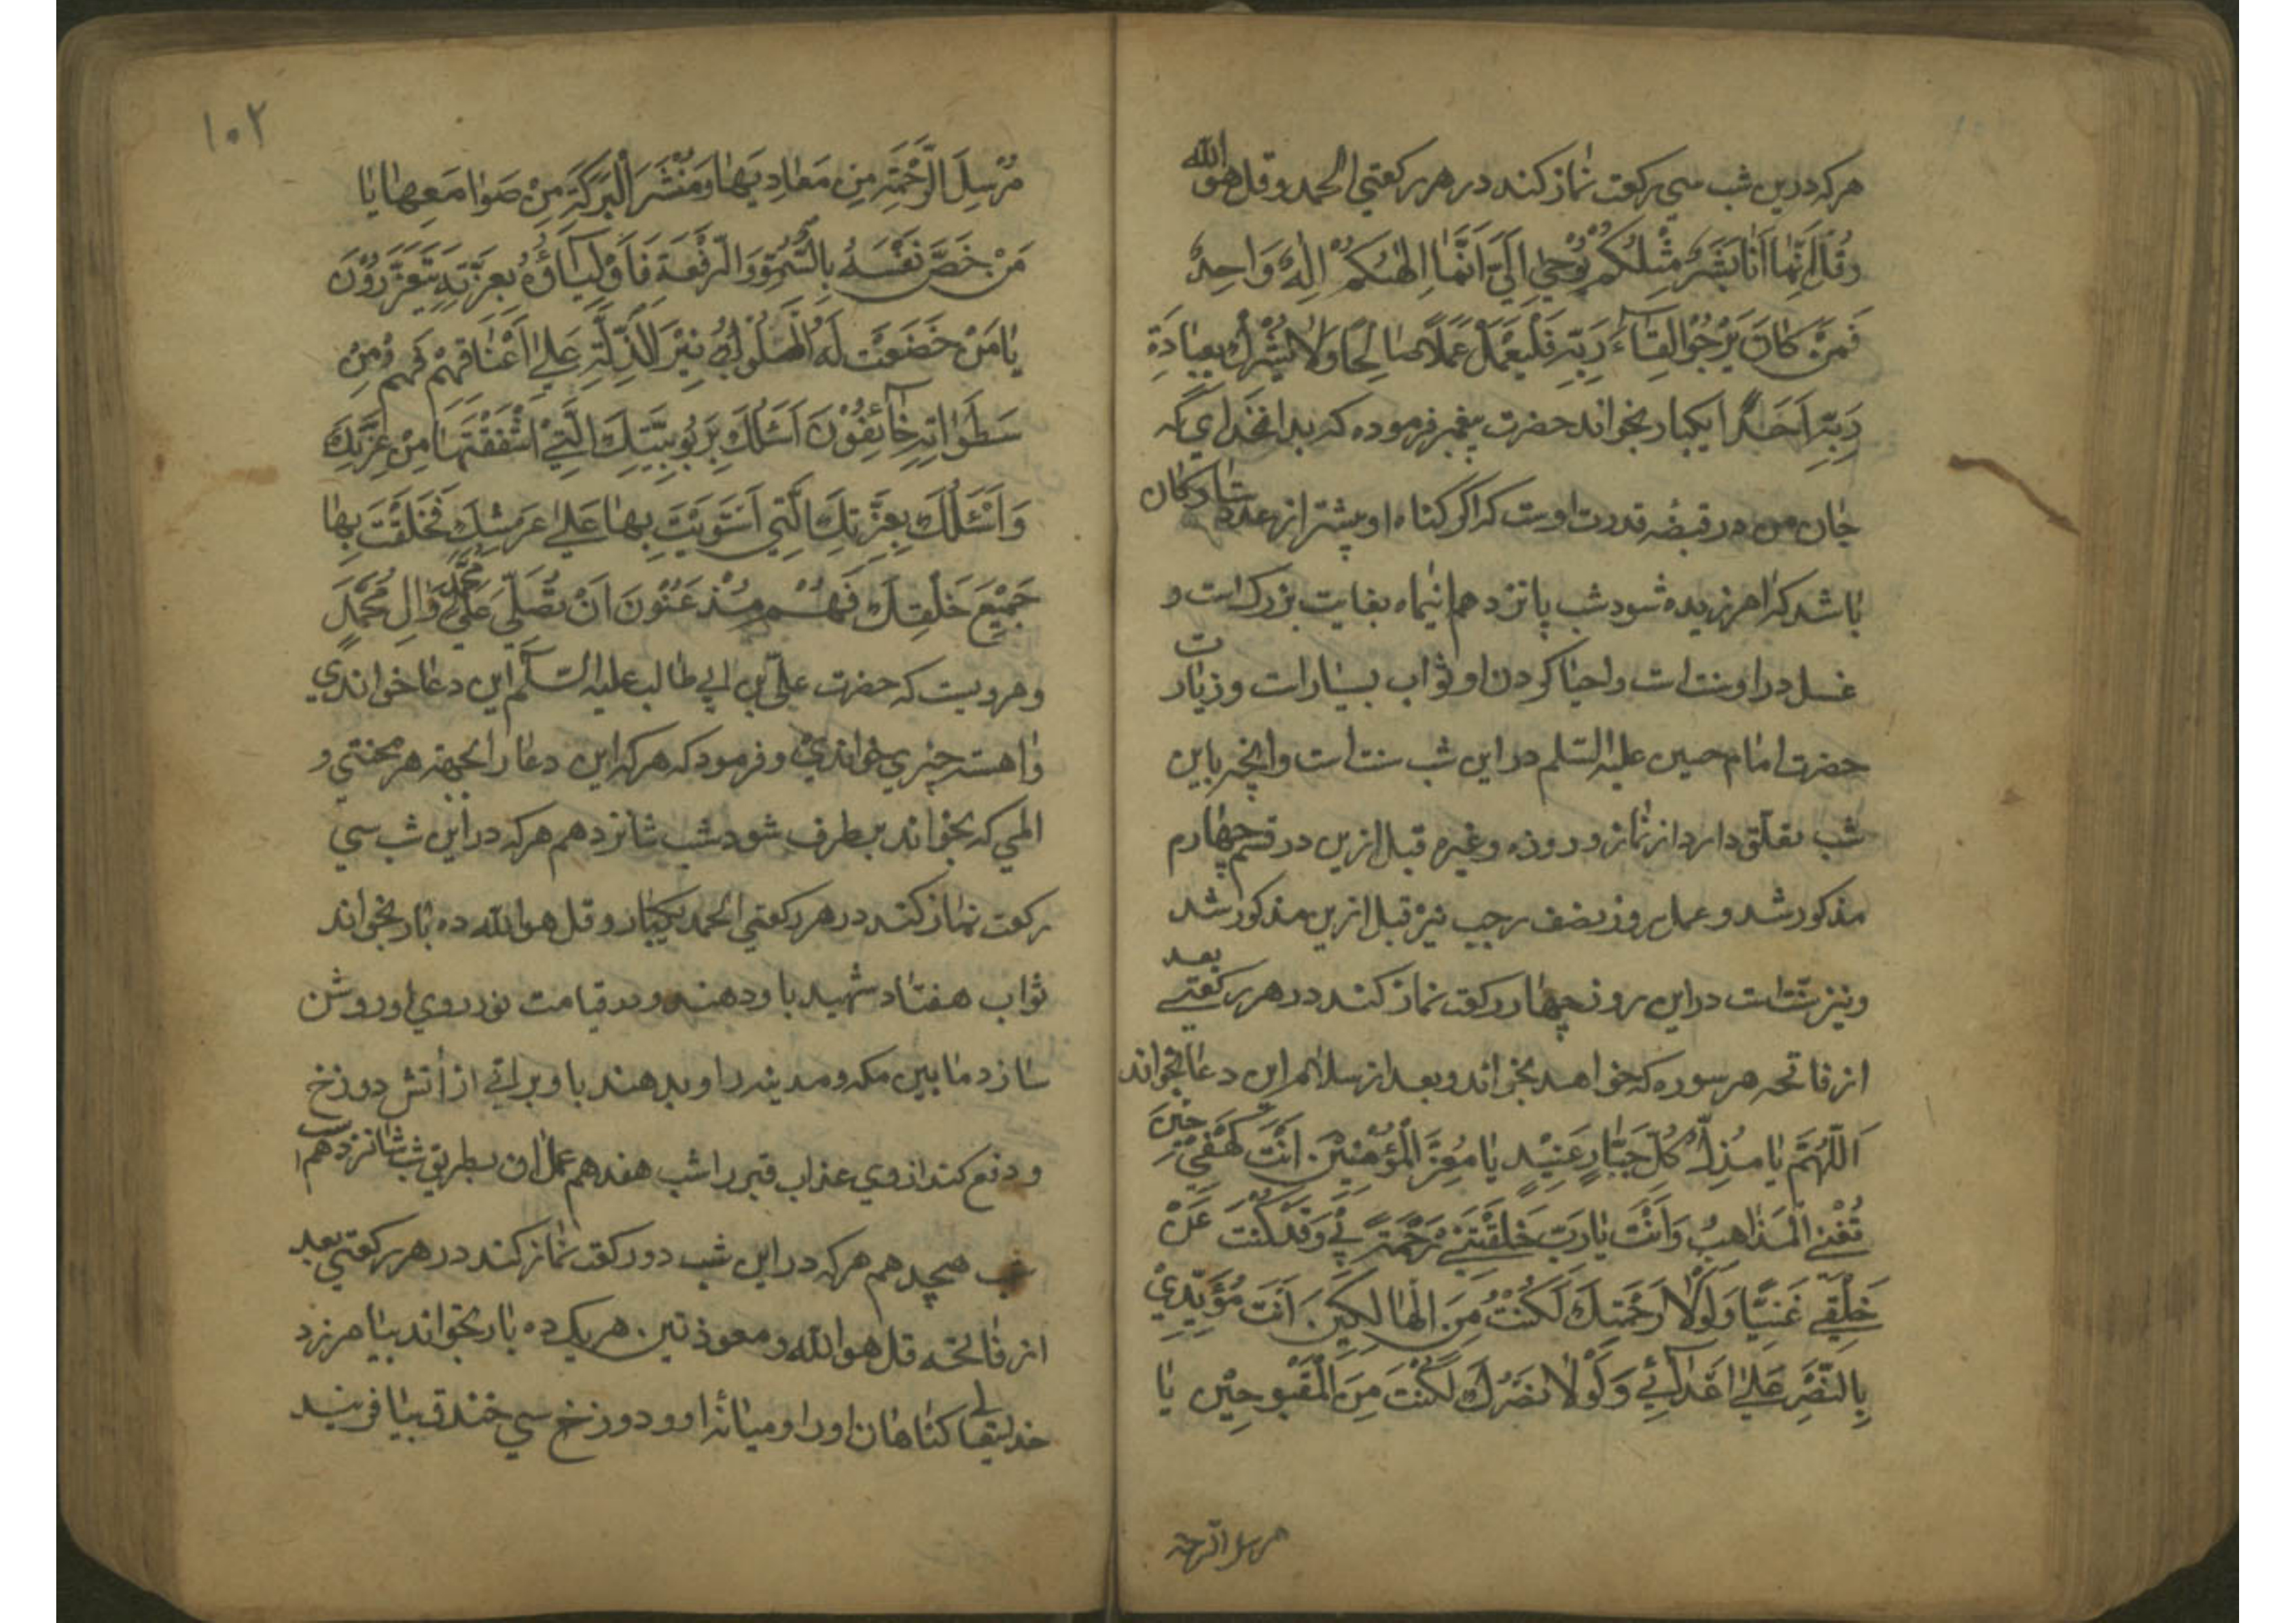 هرکه درین شب سی رکعت نماز کند در هر رکعتی الحمد و قل هو الله
و قل اِنَّمٰا اَنَا بَشَرٌ مِثْلُكُمْ يُوْحٰى اِلَيَّ اَنَّمٰا اِلٰهُكُمْ اِلٰهٌ وَاحِدٌ
فَمَنْ كٰانَ يَرْجُوْا لِقٰاءَ رَبِّهِ فَلْيَعْمَلْ عَمَلًا صٰالِحًا وَلٰا يُشْرِكْ بِعِبٰادَةِ
رَبِّهِ اَحَدًا یکبار بخواند حضرت پیغمبر فرموده که بدان خدای که
جان من در قبضه قدرت اوست که اگر گناه او بیشتر از عدد ستارکان
باشد که امرزیده شود شب پانزدهم اینماه بغایت بزرک است و
غسل در او سنت است و احیا کردن او ثواب بسیار است و زیارت
حضرت امام حسین علیه السّلم در این شب سنت است و انچه باین
شب تعلّق دارد از نماز و روزه و غیره قبل ازین در قسم چهارم
مذکور شد و عمل روز نصف رجب نیز قبل ازین مذکور شد
و نیز سنّت است در این روز چهار رکعت نماز کند در هر رکعتی بعد
از فاتحه هر سوره که خواهد بخواند و بعد از سلام این دعا بخواند
اَللّٰهُمَّ يٰا مُذِلَّ كُلِّ جَبّٰارٍ عَنِيْدٍ يٰا مُعِزَّ الْمُؤْمِنِيْنَ اَنْتَ كَهْفِيْ حِيْنَ
تُعْيِنِيْ الْمَذٰاهِبُ وَاَنْتَ يٰا رَبِّ خَلَقْتَنِيْ رَحْمَةً بِيْ وَقَدْ كُنْتَ عَنْ
خَلْقِيْ غَنِيًّا وَلَوْلٰا رَحْمَتُكَ لَكُنْتُ مِنَ الْهٰالِكِيْنَ اَنْتَ مُؤَيِّدِيْ
بِالنَّصْرِ عَلٰى اَعْدٰائِيْ وَلَوْلٰا نَصْرُكَ لَكُنْتُ مِنَ الْمَقْبُوحِيْنَ يٰا
مرسل الرحمة
۱۰۲
مُرْسِلَ الرَّحْمَةِ مِنْ مَعٰادِنِهٰا وَمُنْشِرَ الْبَرَكَةِ مِنْ مَوٰاضِعِهٰا يٰا
مَنْ خَصَّ نَفْسَهُ بِالسُّمُوِّ وَالرِّفْعَةِ فَاَوْلِيٰاؤُهُ بِعِزَّتِهِ يَتَعَزَّزُوْنَ
يٰا مَنْ خَضَعَتْ لَهُ الْمُلُوْكُ نِيْرَ الْمَذَلَّةِ عَلٰى اَعْنٰاقِهِمْ فَهُمْ مِنْ
سَطَوٰاتِهِ خٰائِفُوْنَ اَسْئَلُكَ بِرُبُوبِيَّتِكَ الَّتِيْ اشْتَقَقْتَهٰا مِنْ عِزِّكَ
وَاَسْئَلُكَ بِعِزَّتِكَ الَّتِي اسْتَوَيْتَ بِهٰا عَلٰى عَرْشِكَ فَخَلَقْتَ بِهٰا
جَمِيْعَ خَلْقِكَ فَهُمْ مُذْعِنُونَ اَنْ تُصَلِّيَ عَلٰى مُحَمَّدٍ وَاٰلِ مُحَمَّدٍ
و مرویست که حضرت علی بن ابی طالب علیه السّلم این دعا خواندی
و اهسته چیزی خواندی و فرمود که هر که این دعا را بجهة هر محنتی و
المی که بخواند برطرف شود شب شانزدهم هر که در این شب سی
رکعت نماز کند در هر رکعتی الحمد یکبار و قل هو الله ده بار بخواند
ثواب هفتاد شهید باو دهند و در قیامت نور روی او روشن
سازد ما بین مکه و مدینه را و بدهند باو براتی از اتش دوزخ
و دفع کند از وی عذاب قبر را شب هفدهم عمل ان بطریق شب شانزدهم است
شب هیجدهم هر که در این شب دو رکعت نماز کند در هر رکعتی بعد
از فاتحه قل هو الله و معوذتین هر یک ده بار بخواند بیامرزد
خدایتعالی کناهان او را و میانه او و دوزخ سی خندق بیافریند